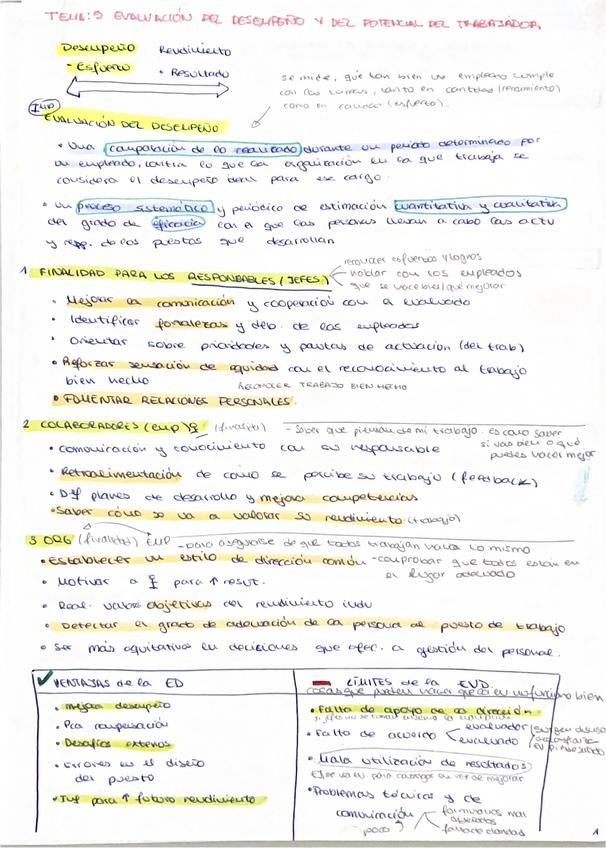 TEMA: 5 EVALUACIÓN DEL DESEMPEÑO Y DEL POTENCIAL DEL TRABAJADOR.
Desempeño Rendimiento
- Esfuerzo • Resultado
se mide, qué tan bien un empleado cumple
con las tareas, tanto en cantidad (rendimiento)
como en calidad (esfuerzo).
EVALUACIÓN DEL DESEMPEÑO
• Una comparación de lo realizado durante un periodo determinado por
un empleado, contra lo que la organización en la que trabaja se
considera el desempeño ideal para ese cargo.
• Un proceso sistemático y periódico de estimación cuantitativa y cualitativa
del grado de eficacia con el que las personas llevan a cabo las actu
y resp. de los puestos que desarrollan
1 FINALIDAD PARA LOS RESPONSABLES (JEFES)
reconocer esfuerzos y logros
hablar con los empleados
que se hace bien/qué mejorar
• Mejorar la comunicación y cooperación con a evaluado
• Identificar fortalezas y deb. de los empleados
• Orientar sobre prioridades y pautas de actuación (del trab)
• Reforzar sensación de equidad con el reconocimiento al trabajo
bien hecho
RECONOCER TRABAJO BIEN HECHO
• FOMENTAR RELACIONES PERSONALES.
2 COLABORADORES (emp) (finalidad) - Saber que piensan de mi trabajo. es como saber
si vas bien o qué
puedes hacer mejor
• Comunicación y conocimiento con su responsable
• Retroalimentación de cómo se percibe su trabajo (feedback)
• Dif planes de desarrollo y mejora competencias
• Saber cómo se va a valorar su rendimiento (trabajo)
3 ORG (finalidad) EMP - para asegurarse de que todos trabajan hacia lo mismo
• Establecer un estilo de dirección común - comprobar que todos están en
el lugar adecuado
• Motivar a para ↑ result.
• Real. valor objetivas del rendimiento indv
• Detectar el grado de adecuación de la persona al puesto de trabajo
• Ser más equitativos en decisiones que afec. a gestión del personal.
VENTAJAS de la ED
• mejora desempeño
• Pca compensación
• Desafíos externos
• Errores en el diseño
del puesto
• Inf para ↑ futuro rendimiento
LÍMITES de la EVD
cosas que pueden hacer que no funcione bien
• Falta de apoyo de la dirección
• Falta de acuerdo evaluador
evaluado
• Mala utilización de resultados
• Problemas técnicos y de
comunicación
poco
formularios mal
falta de claridad
1